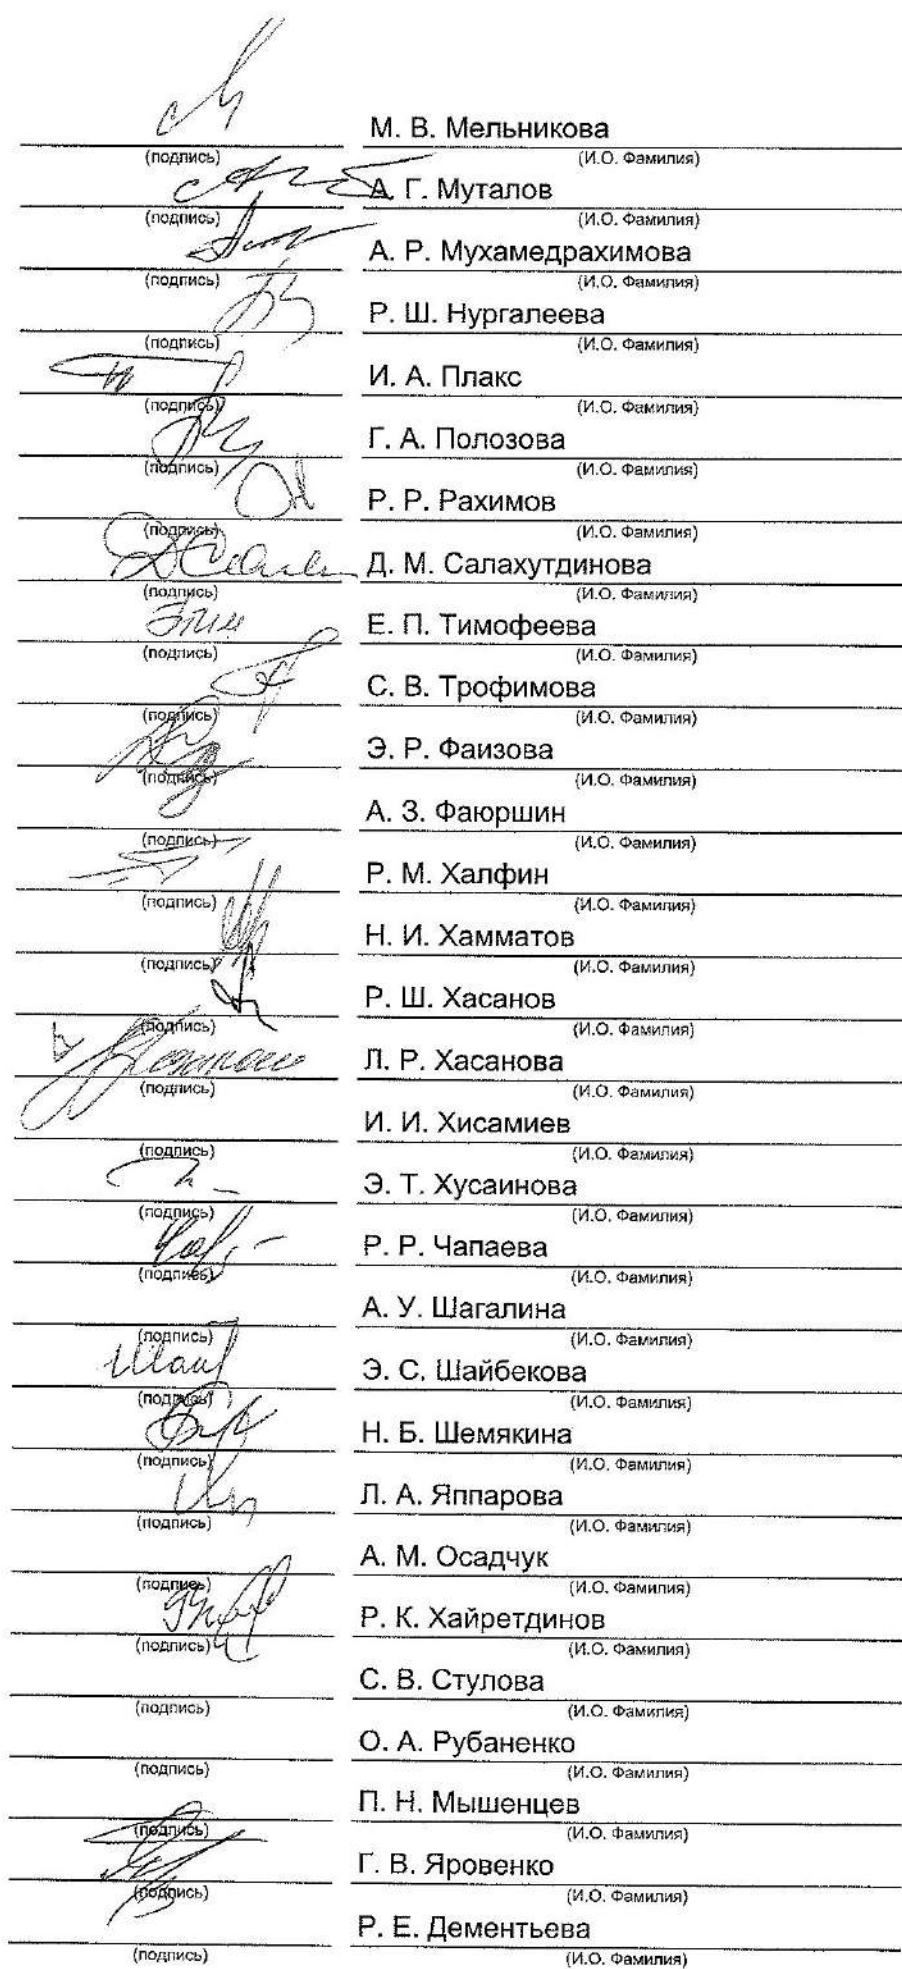 М. В. Мельникова
(подпись) (И.О. Фамилия)
А. Г. Муталов
(подпись) (И.О. Фамилия)
А. Р. Мухамедрахимова
(подпись) (И.О. Фамилия)
Р. Ш. Нургалеева
(подпись) (И.О. Фамилия)
И. А. Плакс
(подпись) (И.О. Фамилия)
Г. А. Полозова
(подпись) (И.О. Фамилия)
Р. Р. Рахимов
(подпись) (И.О. Фамилия)
Д. М. Салахутдинова
(подпись) (И.О. Фамилия)
Е. П. Тимофеева
(подпись) (И.О. Фамилия)
С. В. Трофимова
(подпись) (И.О. Фамилия)
Э. Р. Фаизова
(подпись) (И.О. Фамилия)
А. З. Фаюршин
(подпись) (И.О. Фамилия)
Р. М. Халфин
(подпись) (И.О. Фамилия)
Н. И. Хамматов
(подпись) (И.О. Фамилия)
Р. Ш. Хасанов
(подпись) (И.О. Фамилия)
Л. Р. Хасанова
(подпись) (И.О. Фамилия)
И. И. Хисамиев
(подпись) (И.О. Фамилия)
Э. Т. Хусаинова
(подпись) (И.О. Фамилия)
Р. Р. Чапаева
(подпись) (И.О. Фамилия)
А. У. Шагалина
(подпись) (И.О. Фамилия)
Э. С. Шайбекова
(подпись) (И.О. Фамилия)
Н. Б. Шемякина
(подпись) (И.О. Фамилия)
Л. А. Яппарова
(подпись) (И.О. Фамилия)
А. М. Осадчук
(подпись) (И.О. Фамилия)
Р. К. Хайретдинов
(подпись) (И.О. Фамилия)
С. В. Стулова
(подпись) (И.О. Фамилия)
О. А. Рубаненко
(подпись) (И.О. Фамилия)
П. Н. Мышенцев
(подпись) (И.О. Фамилия)
Г. В. Яровенко
(подпись) (И.О. Фамилия)
Р. Е. Дементьева
(подпись) (И.О. Фамилия)